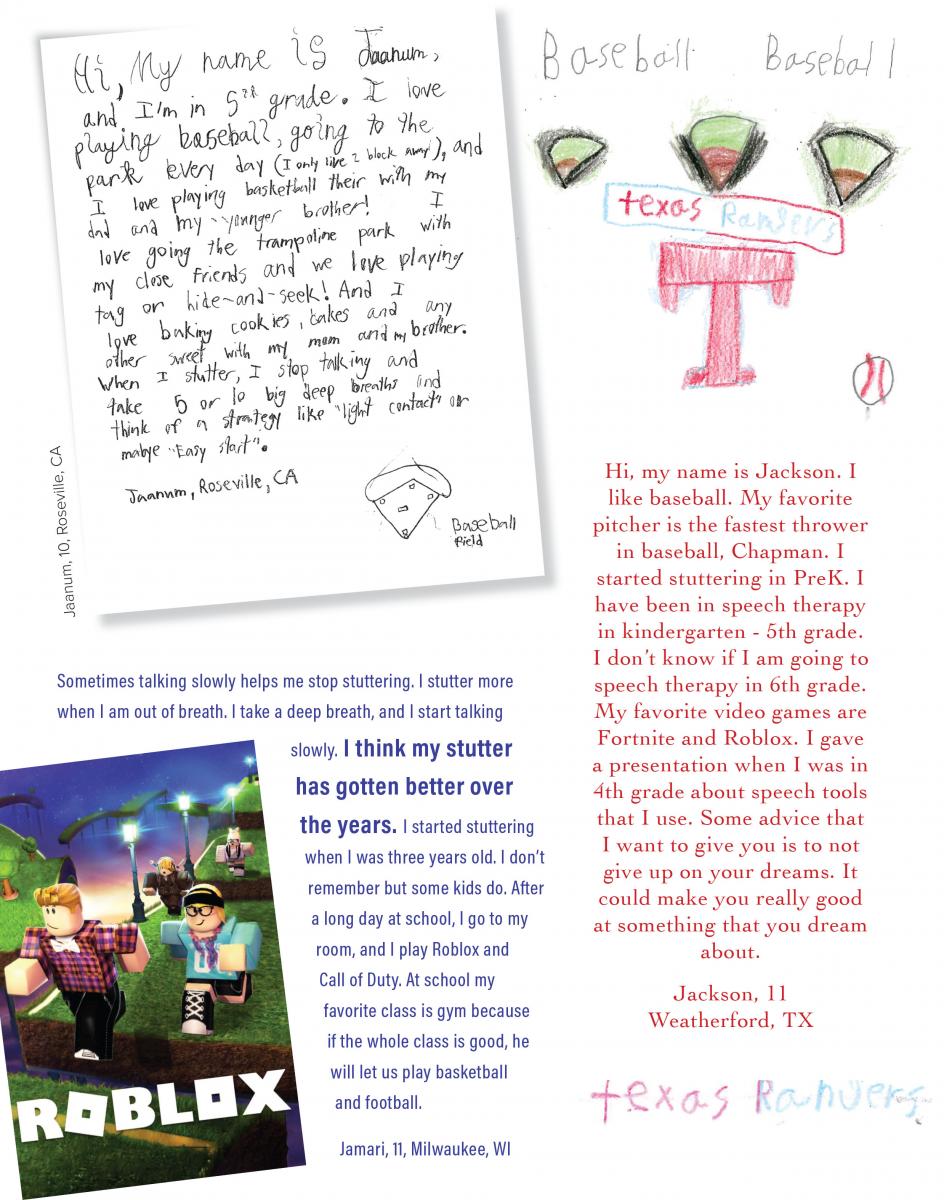 Hi, My name is Jaanum,
and I'm in 5th grade. I love
playing baseball, going to the
park every day (I only live 2 block away), and
I love playing basketball their with my
dad and my younger brother! I
love going the trampoline park with
my close friends and we love playing
tag or hide-and-seek! And I
love baking cookies, cakes and any
other sweet with my mom and my brother.
When I stutter, I stop talking and
take 5 or 10 big deep breaths and
think of a strategy like "light contact" or
mabye "Easy start".
Jaanum, Roseville, CA
Baseball
field
Jaanum, 10, Roseville, CA
Baseball Baseball
texas Rangers
T
Hi, my name is Jackson. I
like baseball. My favorite
pitcher is the fastest thrower
in baseball, Chapman. I
started stuttering in PreK. I
have been in speech therapy
in kindergarten - 5th grade.
I don't know if I am going to
speech therapy in 6th grade.
My favorite video games are
Fortnite and Roblox. I gave
a presentation when I was in
4th grade about speech tools
that I use. Some advice that
I want to give you is to not
give up on your dreams. It
could make you really good
at something that you dream
about.
Jackson, 11
Weatherford, TX
texas Rangers
Sometimes talking slowly helps me stop stuttering. I stutter more
when I am out of breath. I take a deep breath, and I start talking
slowly. I think my stutter
has gotten better over
the years. I started stuttering
when I was three years old. I don't
remember but some kids do. After
a long day at school, I go to my
room, and I play Roblox and
Call of Duty. At school my
favorite class is gym because
if the whole class is good, he
will let us play basketball
and football.
Jamari, 11, Milwaukee, WI
ROBLOX